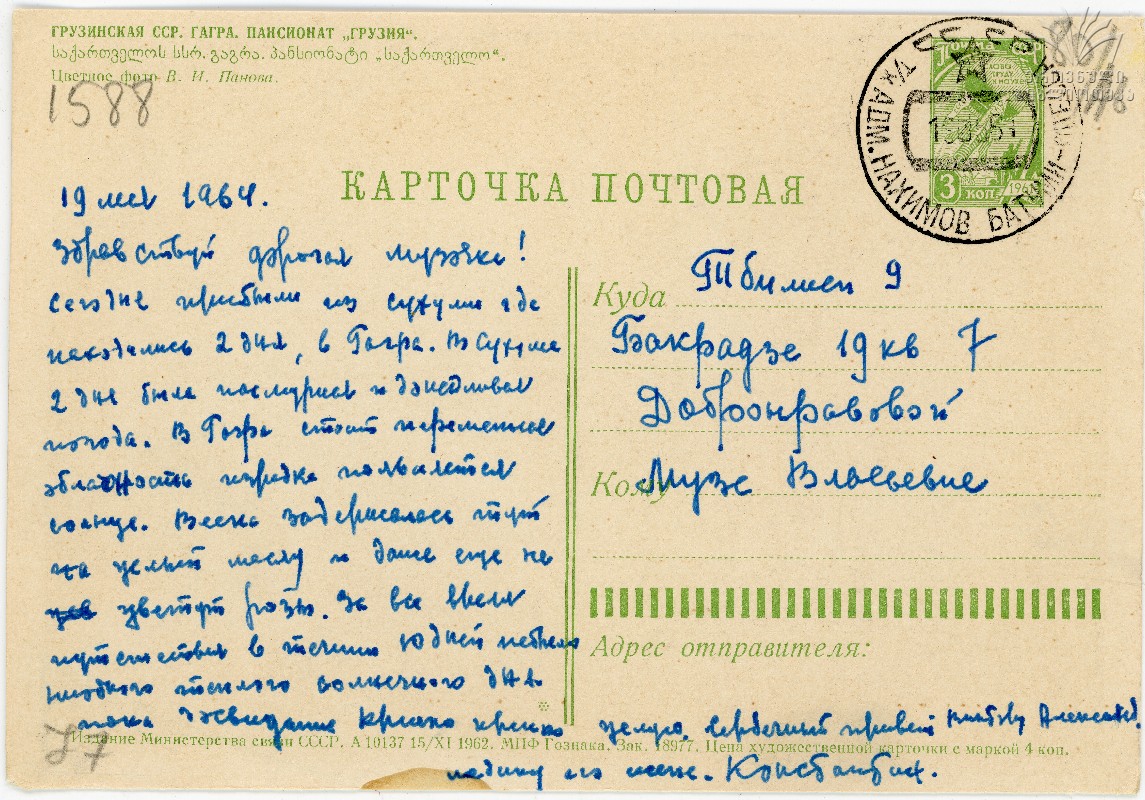 ГРУЗИНСКАЯ ССР. ГАГРА. ПАНСИОНАТ „ГРУЗИЯ“.
საქართველოს სსრ. გაგრა. პანსიონატი „საქართველო“.
Цветное фото В. И. Панова.
1588
КАРТОЧКА ПОЧТОВАЯ
Почта
3 коп
Т/Х АДМ. НАХИМОВ БАТУМИ-
19 мая 1964.
Здравствуй дорогая Музочка!
Сегодня прибыли из Сухуми где
находились 2 дня, в Гагра. В Сухуми
2 дня была пасмурная и дождливая
погода. В Гагра стоит переменная
облачность изредка появляется
солнце. Весна задержалась тут
на целый месяц и даже еще не
цветут розы. За все время
путешествия в течении 10 дней небыло
ниодного теплого солнечного дня.
пока досвидание крепко крепко целую. Сердечный привет
его жене. Константин.
Куда Тбилиси 9
Бакрадзе 19 кв 7
Добронравовой
Кому Музе Власьевне
Адрес отправителя:
Издание Министерства связи СССР. А 10137 15/XI 1962. МПФ Гознака. Зак. 18977. Цена художественной карточки с маркой 4 коп.